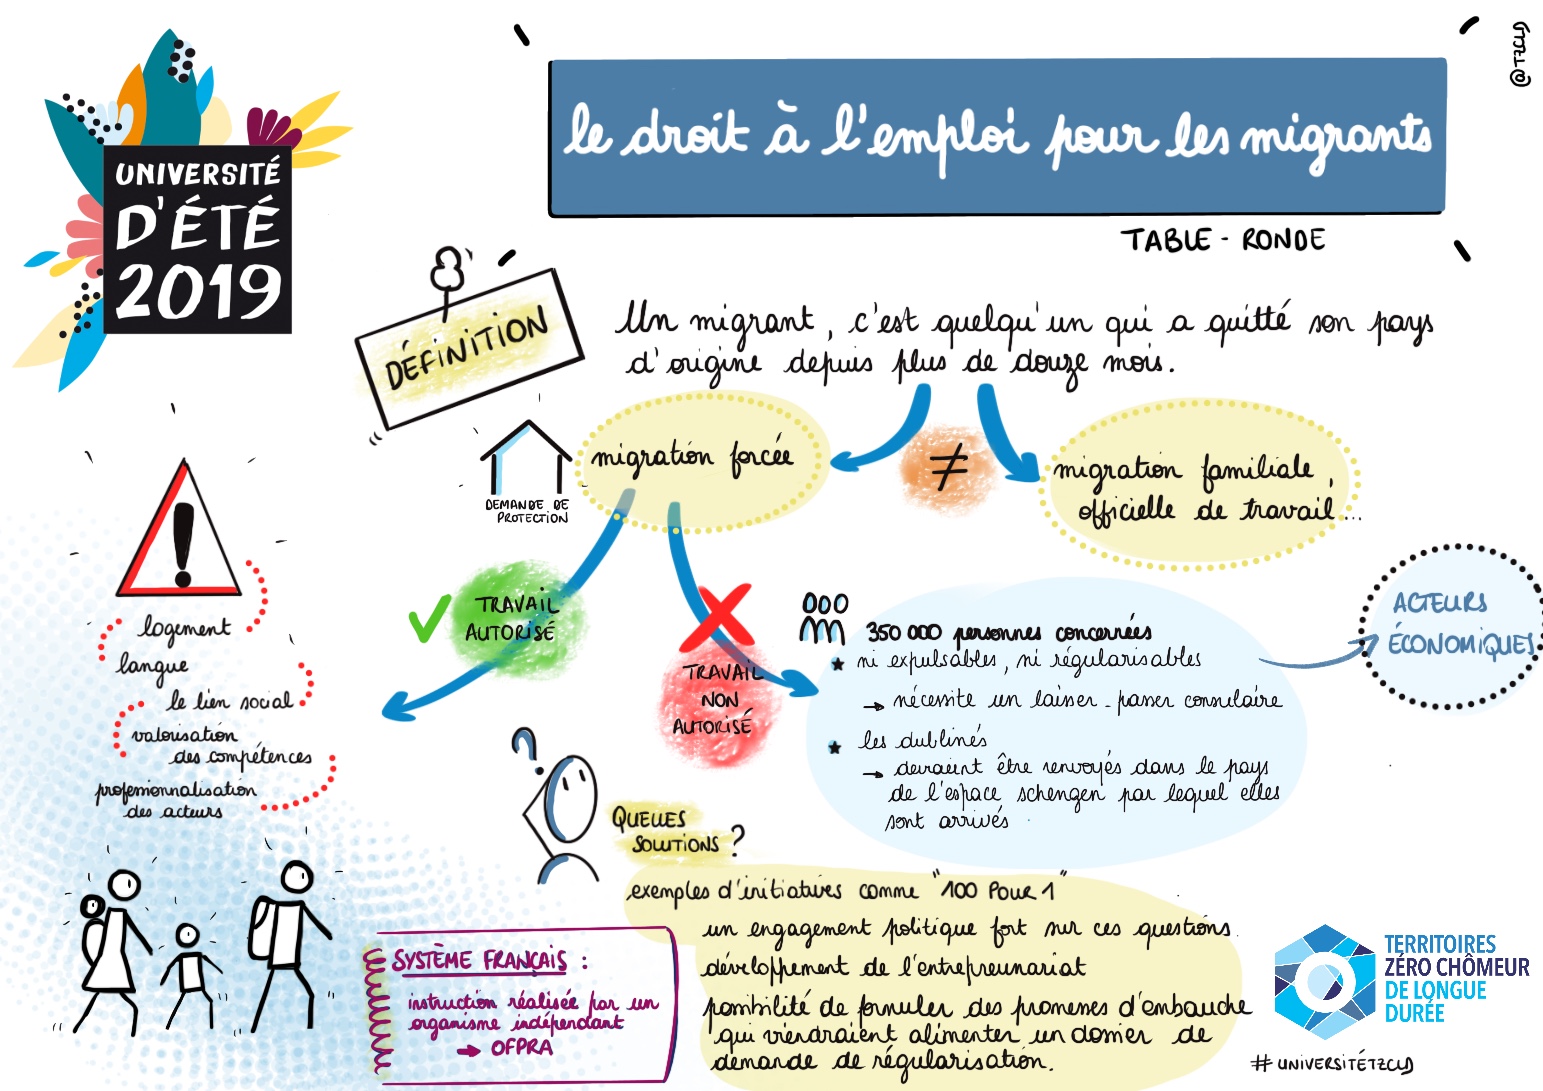 @TZCLD
UNIVERSITÉ
D'ÉTÉ
2019
le droit à l'emploi pour les migrants
TABLE - RONDE
DÉFINITION
Un migrant, c'est quelqu'un qui a quitté son pays
d'origine depuis plus de douze mois.
DEMANDE DE
PROTECTION
migration forcée
≠
migration familiale,
officielle de travail...
TRAVAIL
AUTORISÉ
TRAVAIL
NON
AUTORISÉ
350 000 personnes concernées
★ ni expulsables, ni régularisables
→ nécessite un laisser-passer consulaire
★ les dublinés
→ devraient être renvoyés dans le pays
de l'espace schengen par lequel elles
sont arrivés
ACTEURS
ÉCONOMIQUES
!
logement
langue
le lien social
valorisation
des compétences
professionnalisation
des acteurs
?
QUELLES
SOLUTIONS ?
exemples d'initiatives comme "100 POUR 1"
un engagement politique fort sur ces questions.
développement de l'entrepreunariat
possibilité de formuler des promesses d'embauche
qui viendraient alimenter un dossier de
demande de régularisation.
SYSTÈME FRANÇAIS :
instruction réalisée par un
organisme indépendant
→ OFPRA
TERRITOIRES
ZÉRO CHÔMEUR
DE LONGUE
DURÉE
# UNIVERSITÉTZCLD